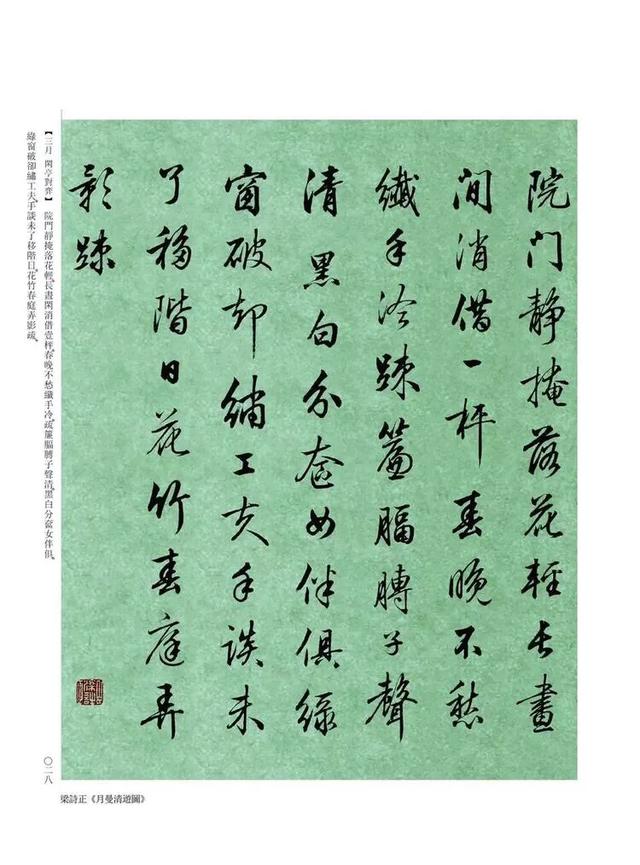 院门静掩落花輕長晝
间消借一枰春晚不愁
纖手冷踈簾腷膊子聲
清 黑白分奩女伴俱綠
窗破却繡工夫手談未
了移階日花竹春庭弄
影踈
【三月 閑亭對弈】 院門靜掩落花輕。長晝閑消借壹枰。春晚不愁纖手冷。疏簾腷膊子聲清。黑白分奩女伴俱。
綠窗破卻繡工夫。手談未了移階日。花竹春庭弄影疏。
〇二八
梁詩正《月曼清遊圖》